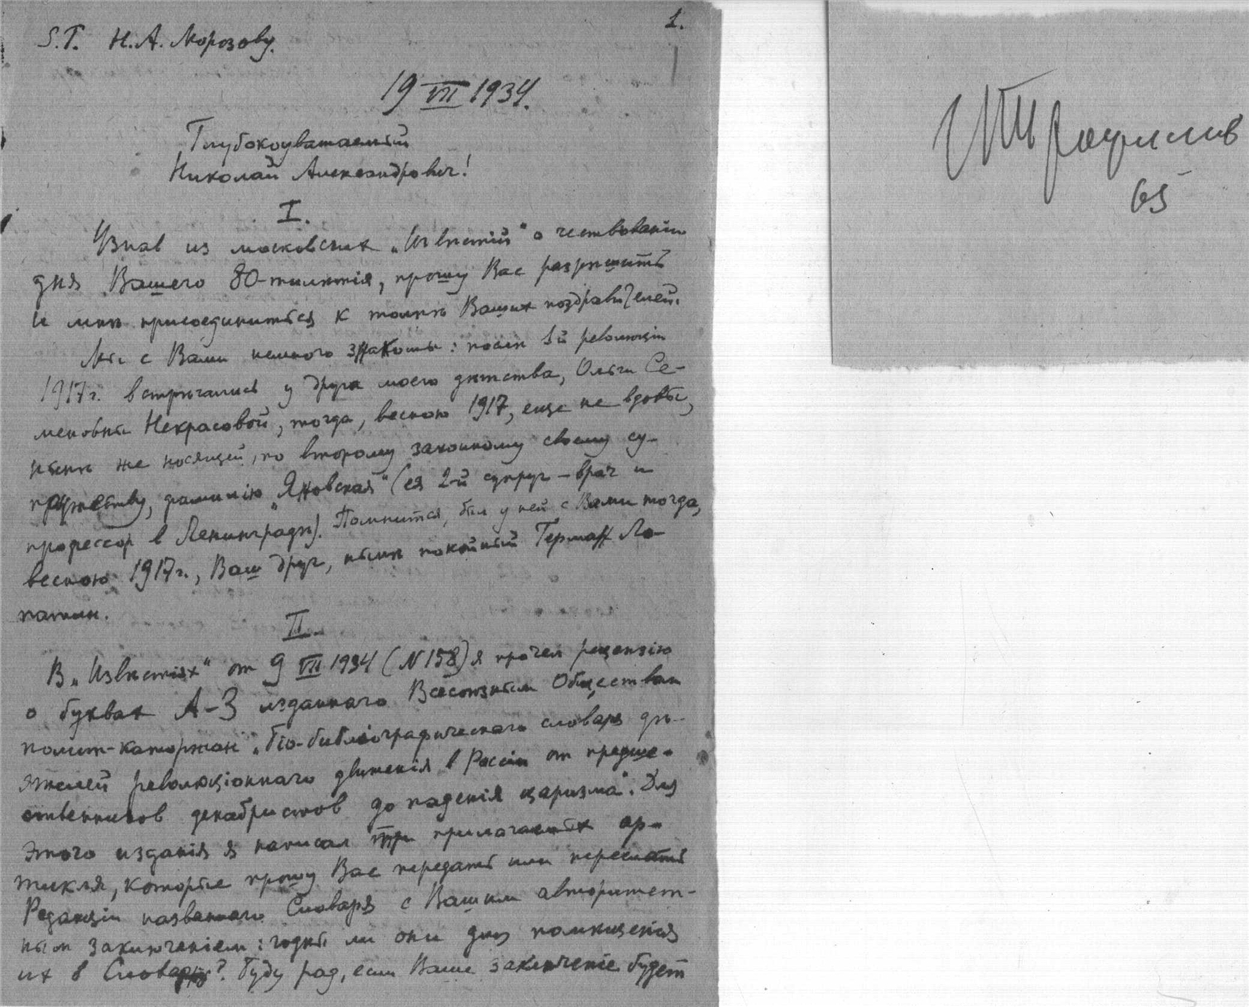 1.
S.T. Н.А. Морозову.
19 VII 1934.
Глубокоуважаемый
Николай Александрович!
I.
Узнав из московских „Извѣстій" о чествованіи
дня Вашего 80-тилѣтія, прошу Вас разрѣшить
и мнѣ присоединиться к толпѣ Ваших поздравителей.
Мы с Вами немного знакомы: послѣ 1й революціи
1917г. встрѣчались у друга моего дѣтства, Ольги Се-
меновны Некрасовой, тогда, весною 1917, еще не вдовы,
нынѣ же носящей, по второму законному своему су-
пружеству, фамилію „Яновская" (ея 2-й супруг – врач и
профессор в Ленинградѣ). Помнится, был у ней с Вами тогда,
весною 1917г., Ваш друг, нынѣ покойный Герман Ло-
патин.
II.
В „Извѣстіях" от 9 VII 1934 (N 158) я прочел рецензію
о буквах А-З изданнаго Всесоюзным Обществом
полит-каторжан „Біо-библіографическаго словаря дѣ-
ятелей революціоннаго движенія в Россіи от предше-
ственников декабристов до паденія царизма". Для
этого изданія я написал три прилагаемых ар-
тикля, которые прошу Вас передать или переслать
Редакціи названнаго Словаря с Вашим авторитет-
ным заключеніем: годны ли они для помѣщенія
их в Словарѣ? Буду рад, если Ваше заключеніе будет
65